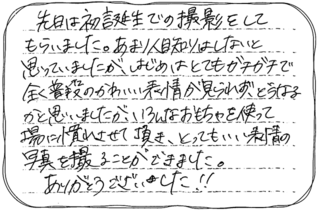 先日は初誕生での撮影をして
もらいました。あまり人見知りはしないと
思っていましたがはじめはとてもガチガチで
全く普段のかわいい表情が見られずどうなる
かと思いましたがいろんなおもちゃを使って
場に慣れさせて頂き、とってもいい表情の
写真を撮ることができました。
ありがとうございました!!